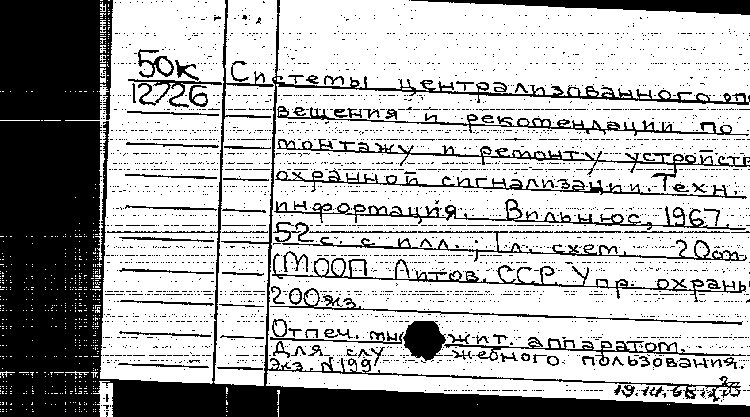 50к
12726
Системы централизованного опо-
вещения и рекомендации по
монтажу и ремонту устройств
охранной сигнализации. Техн.
информация. Вильнюс, 1967.
52 с. с илл.; 1 л. схем. 20см
(МООП Литов. ССР. Упр. охраны
200экз.
Отпеч. мн жит. аппаратом.
Для слу жебного пользования.
Экз. N199.